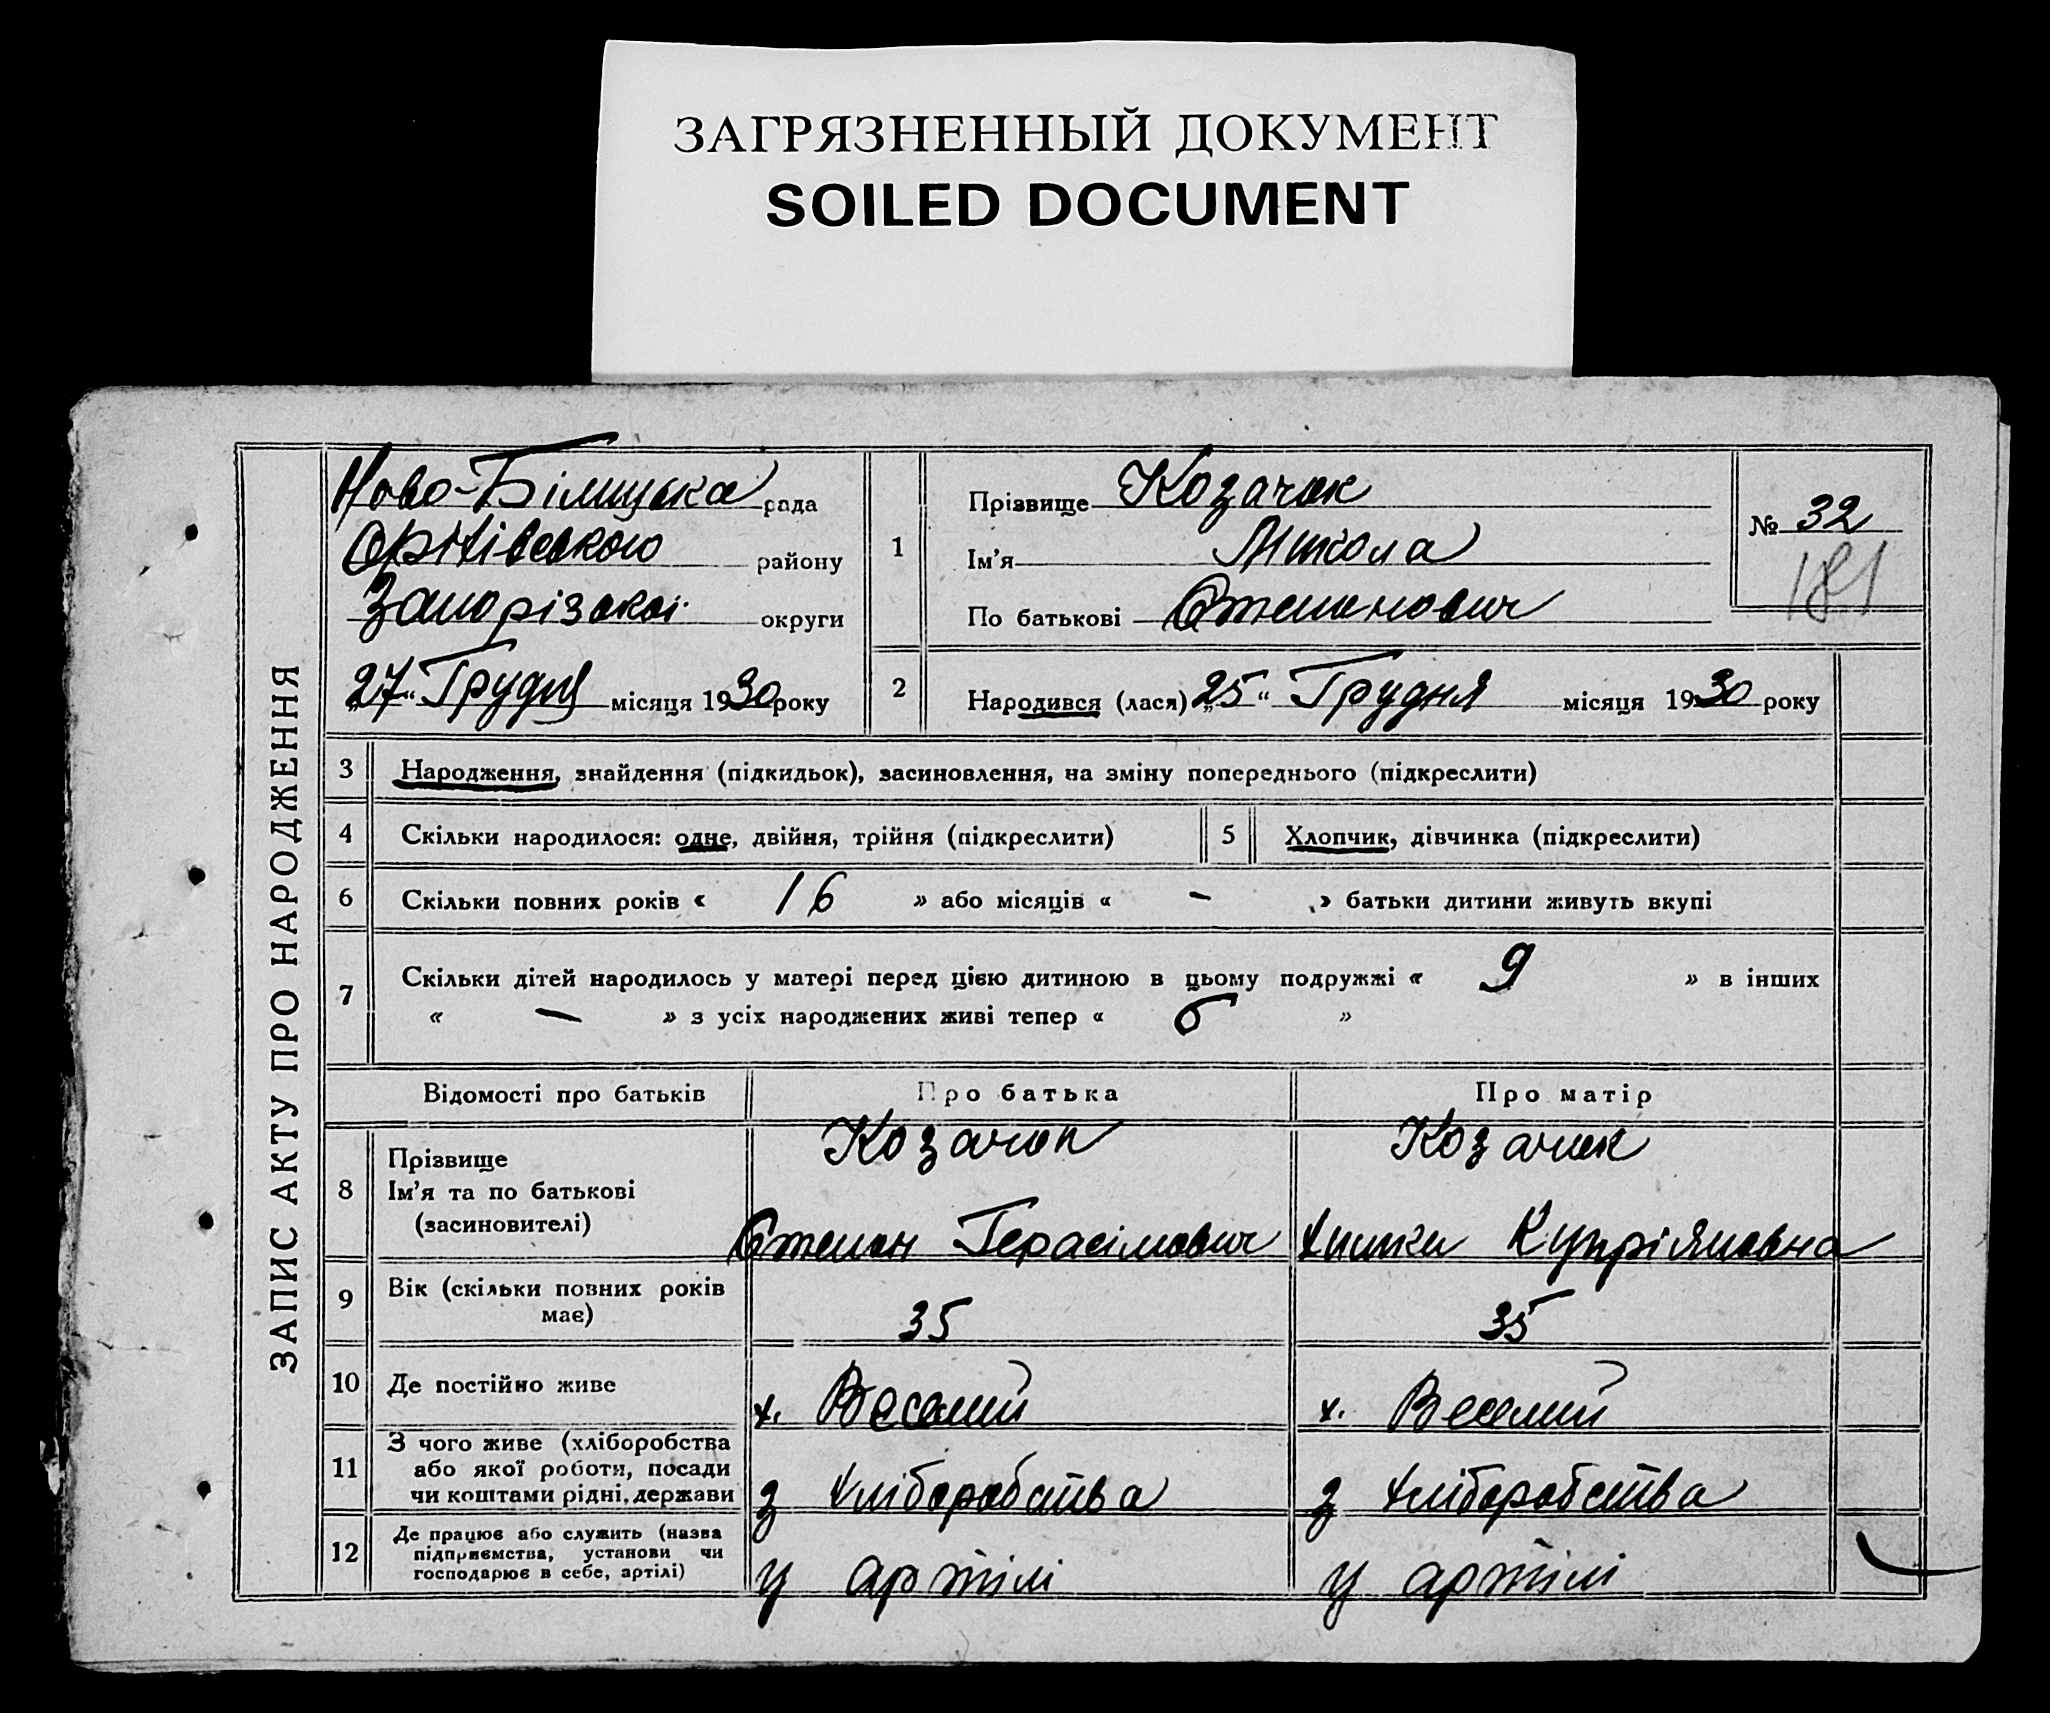 ЗАГРЯЗНЕННЫЙ ДОКУМЕНТ
SOILED DOCUMENT
ЗАПИС АКТУ ПРО НАРОДЖЕННЯ
Ново-Білицька рада
Оріхівського району
Запорізької округи
„27“ Грудня місяця 1930 року
1
Прізвище Козачок
Ім'я Микола
По батькові Степанович
№ 32
181
2
Народився (лася) „25“ Грудня місяця 1930 року
3 Народження, знайдення (підкидьок), засиновлення, на зміну попереднього (підкреслити)
4 Скільки народилося: одне, двійня, трійня (підкреслити) 5 Хлопчик, дівчинка (підкреслити)
6 Скільки повних років « 16 » або місяців « – » батьки дитини живуть вкупі
7 Скільки дітей народилось у матері перед цією дитиною в цьому подружжі « 9 » в інших
« – » з усіх народжених живі тепер « 6 »
Відомості про батьків Про батька Про матір
8 Прізвище Козачок Козачок
Ім'я та по батькові
(засиновителі) Степан Герасімович Купріяновна
9 Вік (скільки повних років
має) 35 35
10 Де постійно живе х. Веселий х. Веселий
11 З чого живе (хліборобства
або якої роботи, посади
чи коштами рідні, держави з хліборобства з хліборобства
12 Де працює або служить (назва
підприємства, установи чи
господарює в себе, артілі) у артілі у артілі